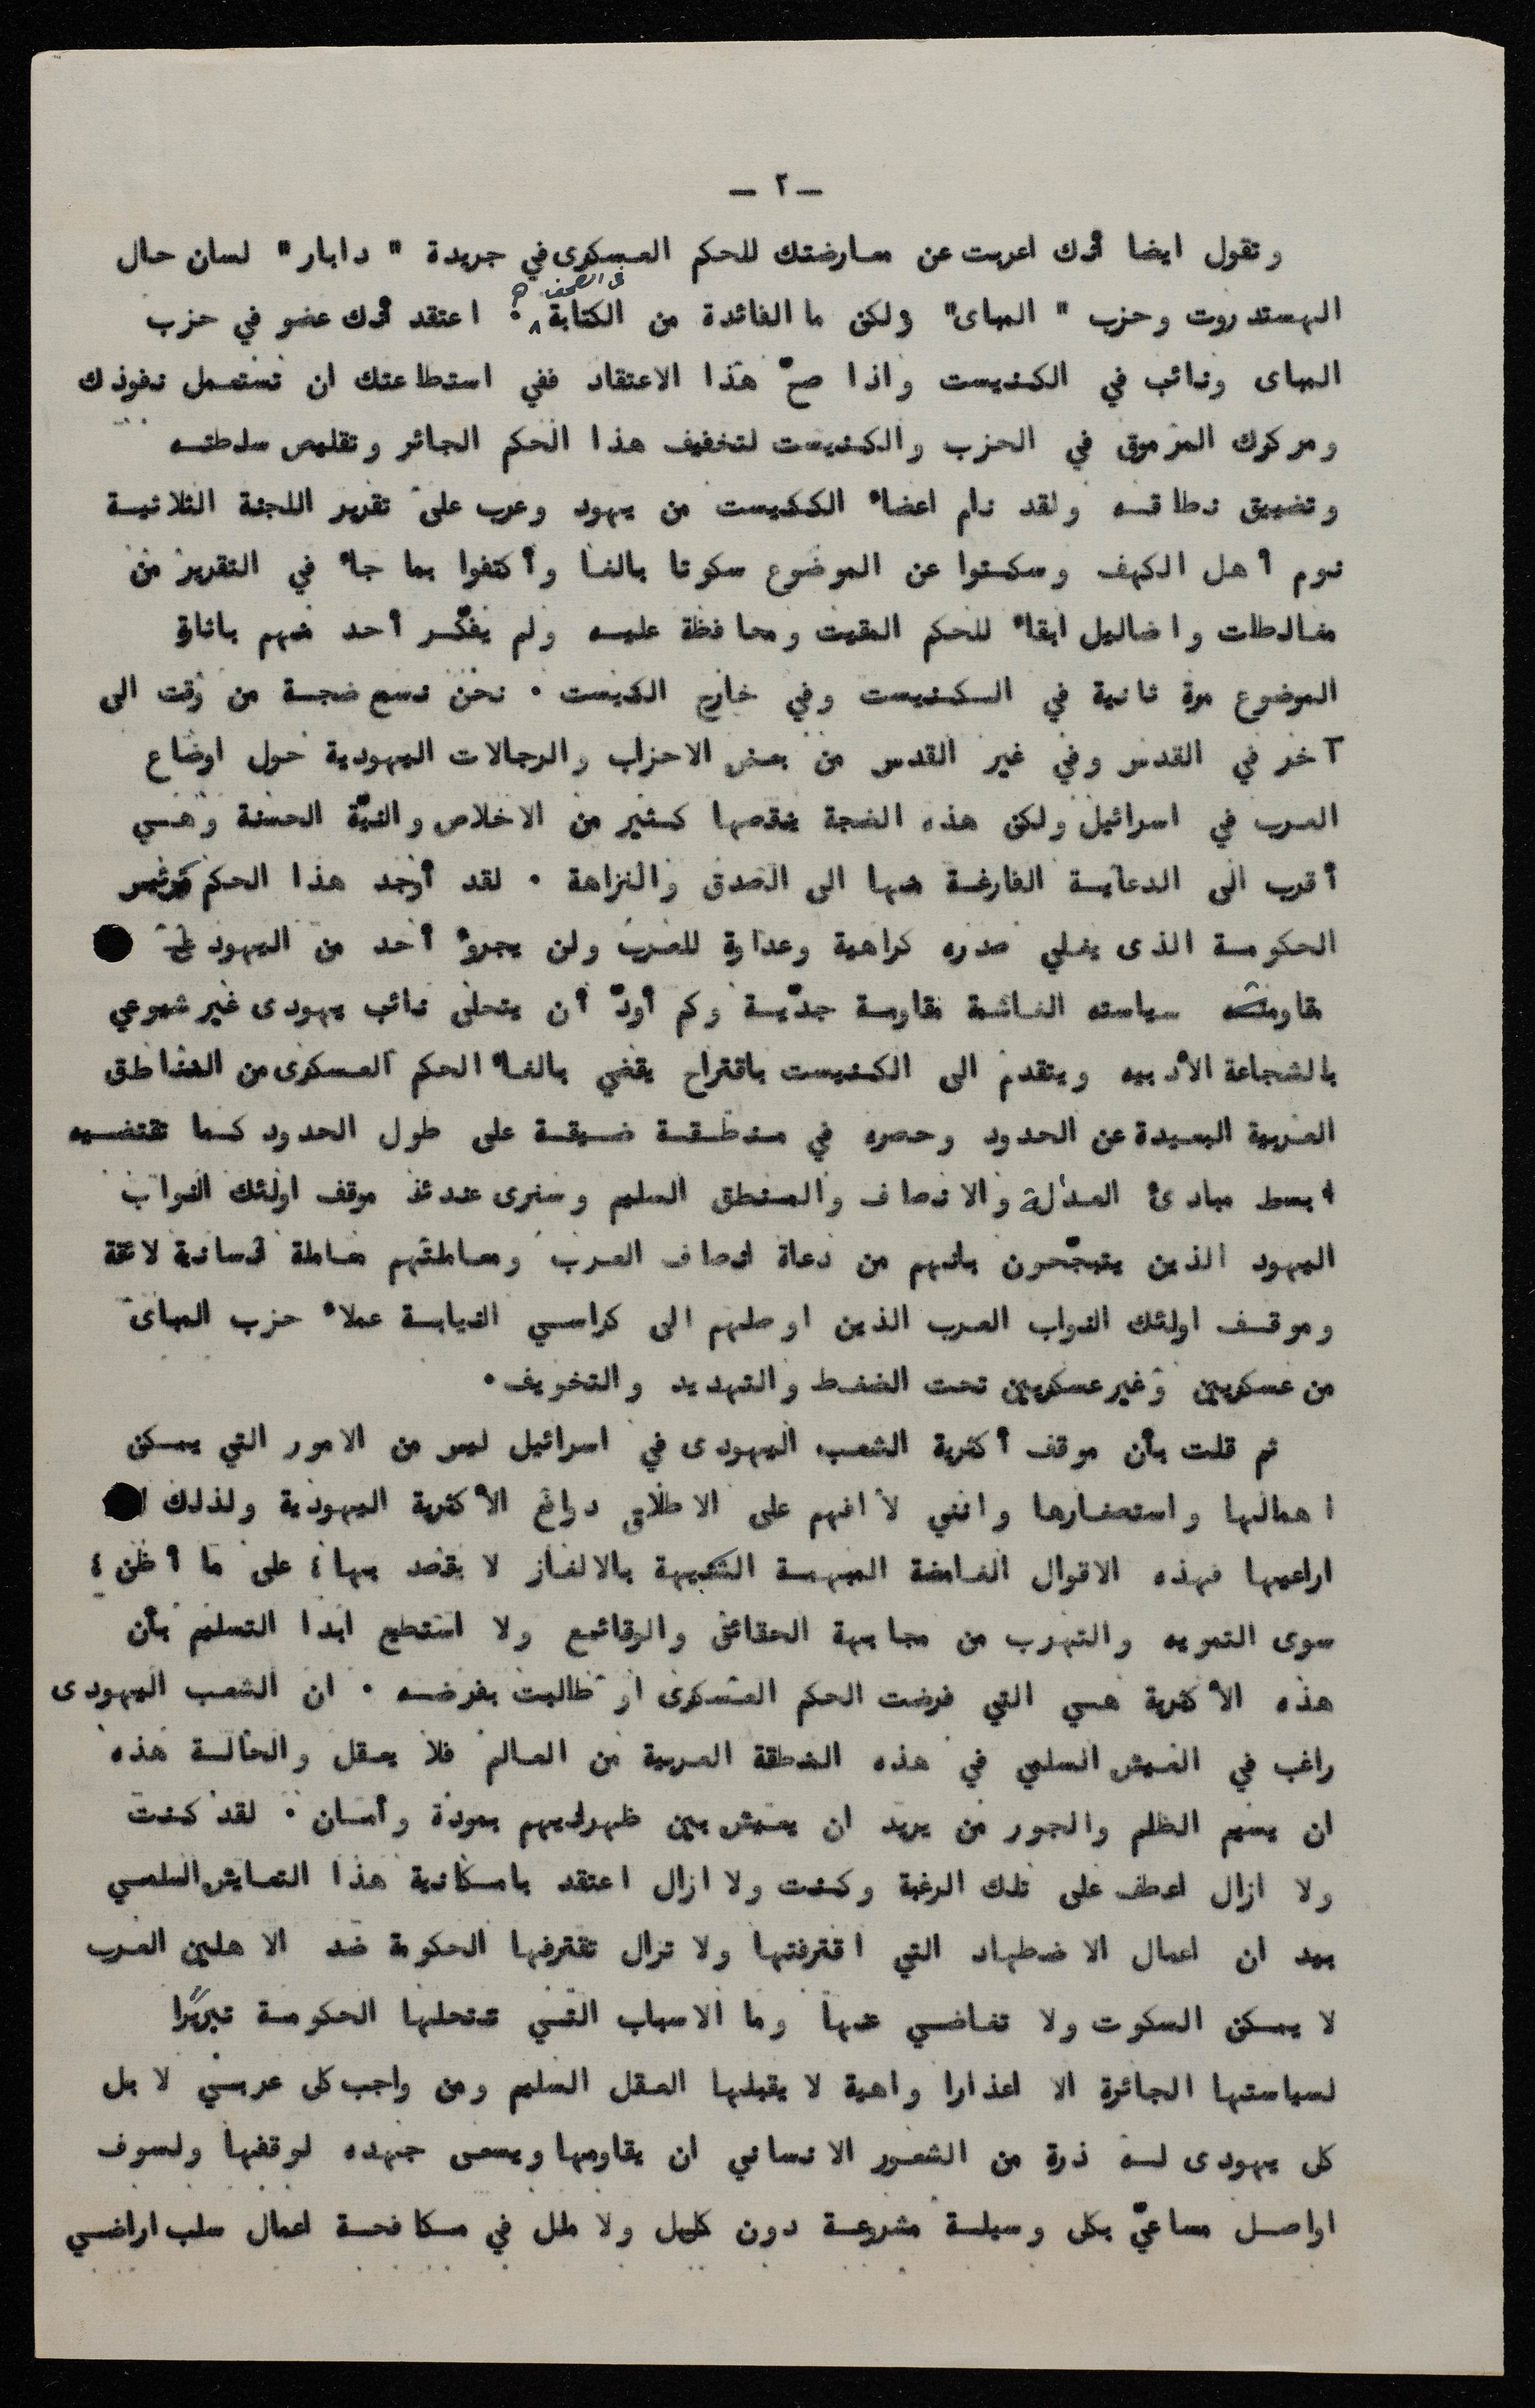 — ٢ —
وتقول ايضا أنك اعربت عن معارضتك للحكم العسكرى في جريدة " دابار" لسان حال
الهستدروت وحزب " المباى" ولكن ما الفائدة من الكتابة في الصحف ؟ اعتقد أنك عضو في حزب
المباى ونائب في الكنيست واذا صحّ هذا الاعتقاد ففي استطاعتك ان تستعمل نفوذك
ومركزك المرموق في الحزب والكنيست لتخفيف هذا الحكم الجائر وتقليص سلطته
وتضييق نطاقه ولقد نام اعضاء الكنيست من يهود وعرب على تقرير اللجنة الثلاثية
نوم أهل الكهف وسكتوا عن الموضوع سكوتا بالغا وأكتفوا بما جاء في التقرير من
مغالطات واضاليل ابقاء للحكم المقيت ومحافظة عليه ولم يفكّر أحد منهم باثارة
الموضوع مرة ثانية في الكنيست وفي خارج الكنيست . نحن نسمع ضجة من وقت الى
آخر في القدس وفي غير القدس من بعض الاحزاب والرجالات اليهودية حول اوضاع
العرب في اسرائيل ولكن هذه الضجة ينقصها كثير من الاخلاص والنيّة الحسنة وهي
أقرب الى الدعاية الفارغة منها الى الصدق والنزاهة . لقد أوجد هذا الحكم رئيس
الحكومة الذى يغلي صدره كراهية وعداوة للعرب ولن يجرؤ أحد من اليهود على
مقاومة سياسته الغاشمة مقاومة جدّية وكم أودّ أن يتحلى نائب يهودى غير شيوعي
بالشجاعة الأدبيه ويتقدم الى الكنيست باقتراح يقضي بالغاء الحكم العسكرى من المناطق
العربية البعيدة عن الحدود وحصره في منطقة ضيقة على طول الحدود كما تقتضيه
ابسط مبادئ العدالة والانصاف والمنطق السليم وسنرى عندئذ موقف اولئك النواب
اليهود الذين يتبجّحون بانهم من دعاة انصاف العرب ومعاملتهم معاملة انسانية لائقة
وموقف اولئك النواب العرب الذين اوصلهم الى كراسي النيابة عملاء حزب المباى
من عسكريين وغير عسكريين تحت الضغط والتهديد والتخويف .
ثم قلت بأن موقف أكثرية الشعب اليهودى في اسرائيل ليس من الامور التي يمكن
اهمالها واستصغارها وانني لا افهم على الاطلاق دوافع الأكثرية اليهودية ولذلك
اراعيها فهذه الاقوال الغامضة المبهمة الشبيهة بالالغاز لا يقصد بها ، على ما أظن ،
سوى التمويه والتهرب من مجابهة الحقائق والوقائع ولا استطيع ابدا التسليم بأن
هذه الأكثرية هي التي فرضت الحكم العسكرى او طالبت بفرضه . ان الشعب اليهودى
راغب في العيش السلمي في هذه المنطقة العربية من العالم فلا يعقل والحالة هذه
ان يسيم الظلم والجور من يريد ان يعيش بين ظهرانيهم بمودة وأمان . لقد كنت
ولا ازال اعطف على تلك الرغبة وكنت ولا ازال اعتقد بامكانية هذا التعايش السلمي
بيد ان اعمال الاضطهاد التي اقترفتها ولا تزال تقترفها الحكومة ضد الاهلين العرب
لا يمكن السكوت ولا تغاضي عنها وما الاسباب التي تنتحلها الحكومة تبريرًا
لسياستها الجائرة الا اعذارا واهية لا يقبلها العقل السليم ومن واجب كل عربي لا بل
كل يهودى له ذرة من الشعور الانساني ان يقاومها ويسعى جهده لوقفها ولسوف
اواصل مساعيّ بكل وسيلة مشروعة دون كلل ولا ملل في مكافحة اعمال سلب اراضي